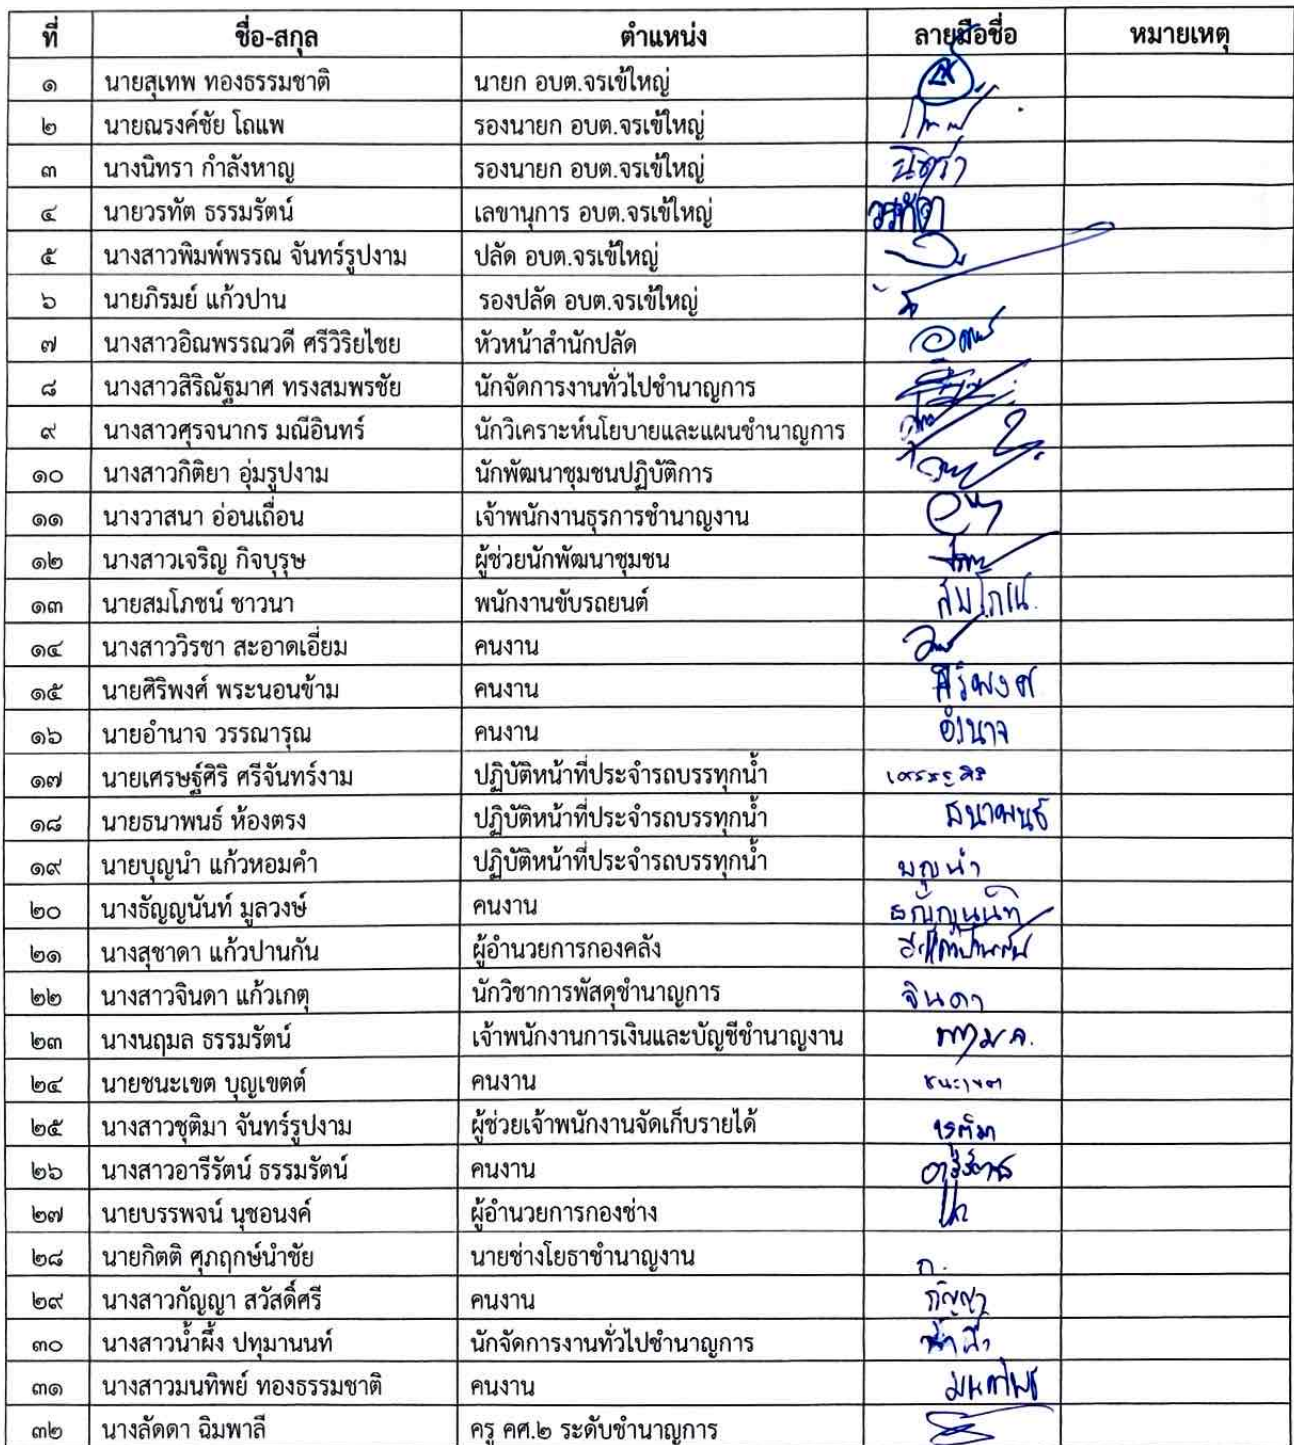 ที่ ชื่อ-สกุล ตำแหน่ง ลายมือชื่อ หมายเหตุ
๑ นายสุเทพ ทองธรรมชาติ นายก อบต.จรเข้ใหญ่
๒ นายณรงค์ชัย โถแพ รองนายก อบต.จรเข้ใหญ่
๓ นางนิทรา กำลังหาญ รองนายก อบต.จรเข้ใหญ่ นิทรา
๔ นายวรทัต ธรรมรัตน์ เลขานุการ อบต.จรเข้ใหญ่ วรทัต
๕ นางสาวพิมพ์พรรณ จันทร์รูปงาม ปลัด อบต.จรเข้ใหญ่
๖ นายภิรมย์ แก้วปาน รองปลัด อบต.จรเข้ใหญ่
๗ นางสาวอิณพรรณวดี ศรีวิริยไชย หัวหน้าสำนักปลัด
๘ นางสาวสิริณัฐมาศ ทรงสมพรชัย นักจัดการงานทั่วไปชำนาญการ
๙ นางสาวศุรจนากร มณีอินทร์ นักวิเคราะห์นโยบายและแผนชำนาญการ
๑๐ นางสาวกิติยา อุ่มรูปงาม นักพัฒนาชุมชนปฏิบัติการ
๑๑ นางวาสนา อ่อนเถื่อน เจ้าพนักงานธุรการชำนาญงาน
๑๒ นางสาวเจริญ กิจบุรุษ ผู้ช่วยนักพัฒนาชุมชน
๑๓ นายสมโภชน์ ชาวนา พนักงานขับรถยนต์
๑๔ นางสาววิรชา สะอาดเอี่ยม คนงาน
๑๕ นายศิริพงศ์ พระนอนข้าม คนงาน ศิริพงศ์
๑๖ นายอำนาจ วรรณารุณ คนงาน อำนาจ
๑๗ นายเศรษฐ์ศิริ ศรีจันทร์งาม ปฏิบัติหน้าที่ประจำรถบรรทุกน้ำ
๑๘ นายธนาพนธ์ ห้องตรง ปฏิบัติหน้าที่ประจำรถบรรทุกน้ำ ธนาพนธ์
๑๙ นายบุญนำ แก้วหอมคำ ปฏิบัติหน้าที่ประจำรถบรรทุกน้ำ บุญนำ
๒๐ นางธัญญนันท์ มูลวงษ์ คนงาน ธัญญนันท์
๒๑ นางสุชาดา แก้วปานกัน ผู้อำนวยการกองคลัง
๒๒ นางสาวจินดา แก้วเกตุ นักวิชาการพัสดุชำนาญการ จินดา
๒๓ นางนฤมล ธรรมรัตน์ เจ้าพนักงานการเงินและบัญชีชำนาญงาน
๒๔ นายชนะเขต บุญเขตต์ คนงาน ชนะเขต
๒๕ นางสาวชุติมา จันทร์รูปงาม ผู้ช่วยเจ้าพนักงานจัดเก็บรายได้ ชุติมา
๒๖ นางสาวอารีรัตน์ ธรรมรัตน์ คนงาน
๒๗ นายบรรพจน์ นุชอนงค์ ผู้อำนวยการกองช่าง
๒๘ นายกิตติ ศุภฤกษ์นำชัย นายช่างโยธาชำนาญงาน ก.
๒๙ นางสาวกัญญา สวัสดิ์ศรี คนงาน กัญญา
๓๐ นางสาวน้ำผึ้ง ปทุมานนท์ นักจัดการงานทั่วไปชำนาญการ
๓๑ นางสาวมนทิพย์ ทองธรรมชาติ คนงาน
๓๒ นางลัดดา ฉิมพาลี ครู คศ.๒ ระดับชำนาญการ